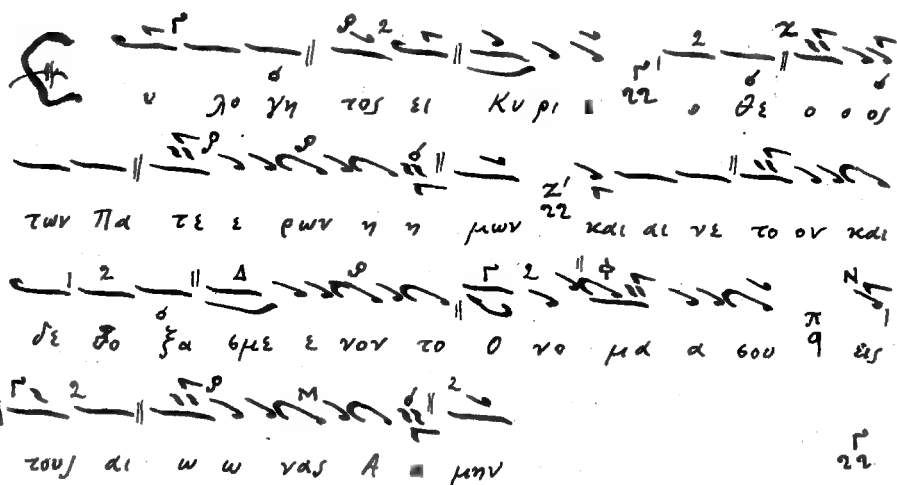 Ευ λο γη τος ει Κυ ρι ο θε ο ο ος
των Πα τε ε ρων η η μων και αι νε το ον και
δε δο ξα σμε ε νον το Ο νο μα α σου εις
τους αι ω ω νας Α μην